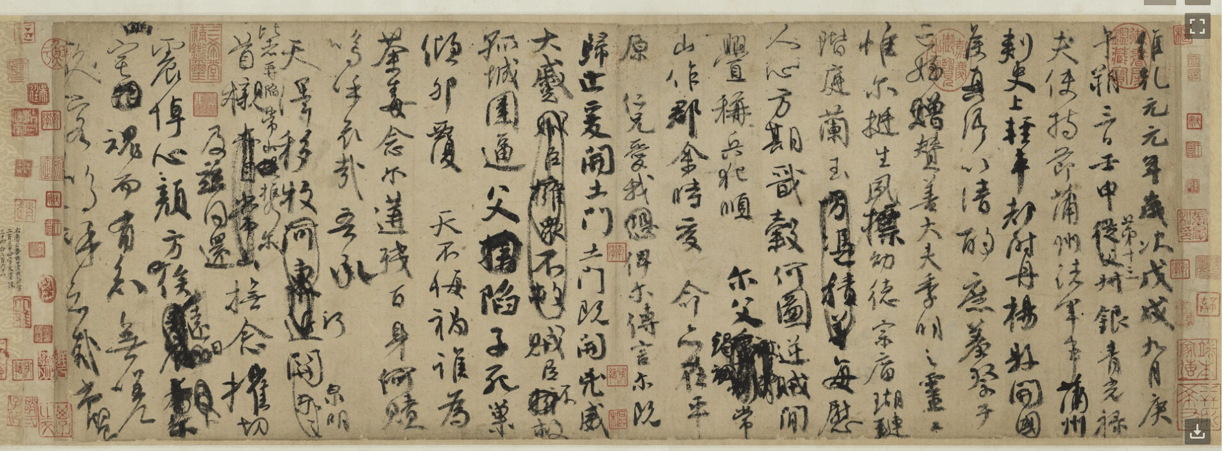 維乾元元年歲次戊戌九月庚
午朔三日壬申第十三從父叔銀青光祿
夫使持節蒲州諸軍事蒲州
刺史上輕車都尉丹楊縣開國
侯真卿以清酌庶羞祭于
亡姪贈贊善大夫季明之靈曰
惟爾挺生夙標幼德宗廟瑚璉
階庭蘭玉方憑積善每慰
人心方期戩穀何圖逆賊閒
釁稱兵犯順爾父竭誠常
山作郡余時受命亦在平
原仁兄愛我恐俾爾傳言爾既
歸止爰開土門土門既開凶威
大蹙賊臣擁眾不救賊臣不擁救
孤城圍逼父擒陷子死巢
傾卵覆天不悔禍誰為
荼毒念爾遘殘百身何贖
嗚呼哀哉吾承
天澤移牧河東近河關泉明
比者再陷常山攜爾
首櫬亦自常山及茲同還撫念摧切
震悼心顏方俟遠日
宅魂而有知無嗟
久客嗚呼哀哉尚饗